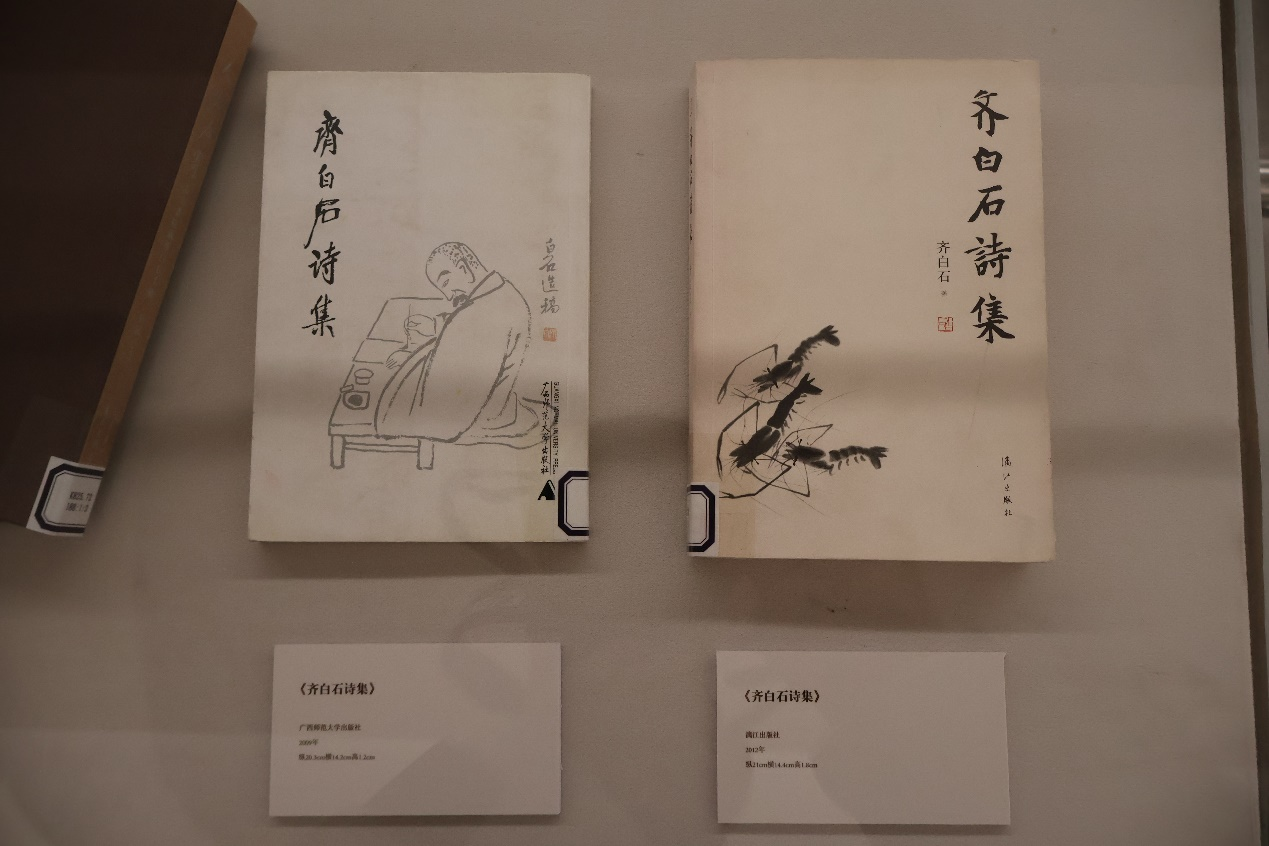 齊白石诗集
白石造稿
广西师范大学出版社
齐白石詩集
齐白石
漓江出版社
《齐白石诗集》
广西师范大学出版社
2009年
《齐白石诗集》
漓江出版社
2012年
纵21cm横14.4cm高1.8cm